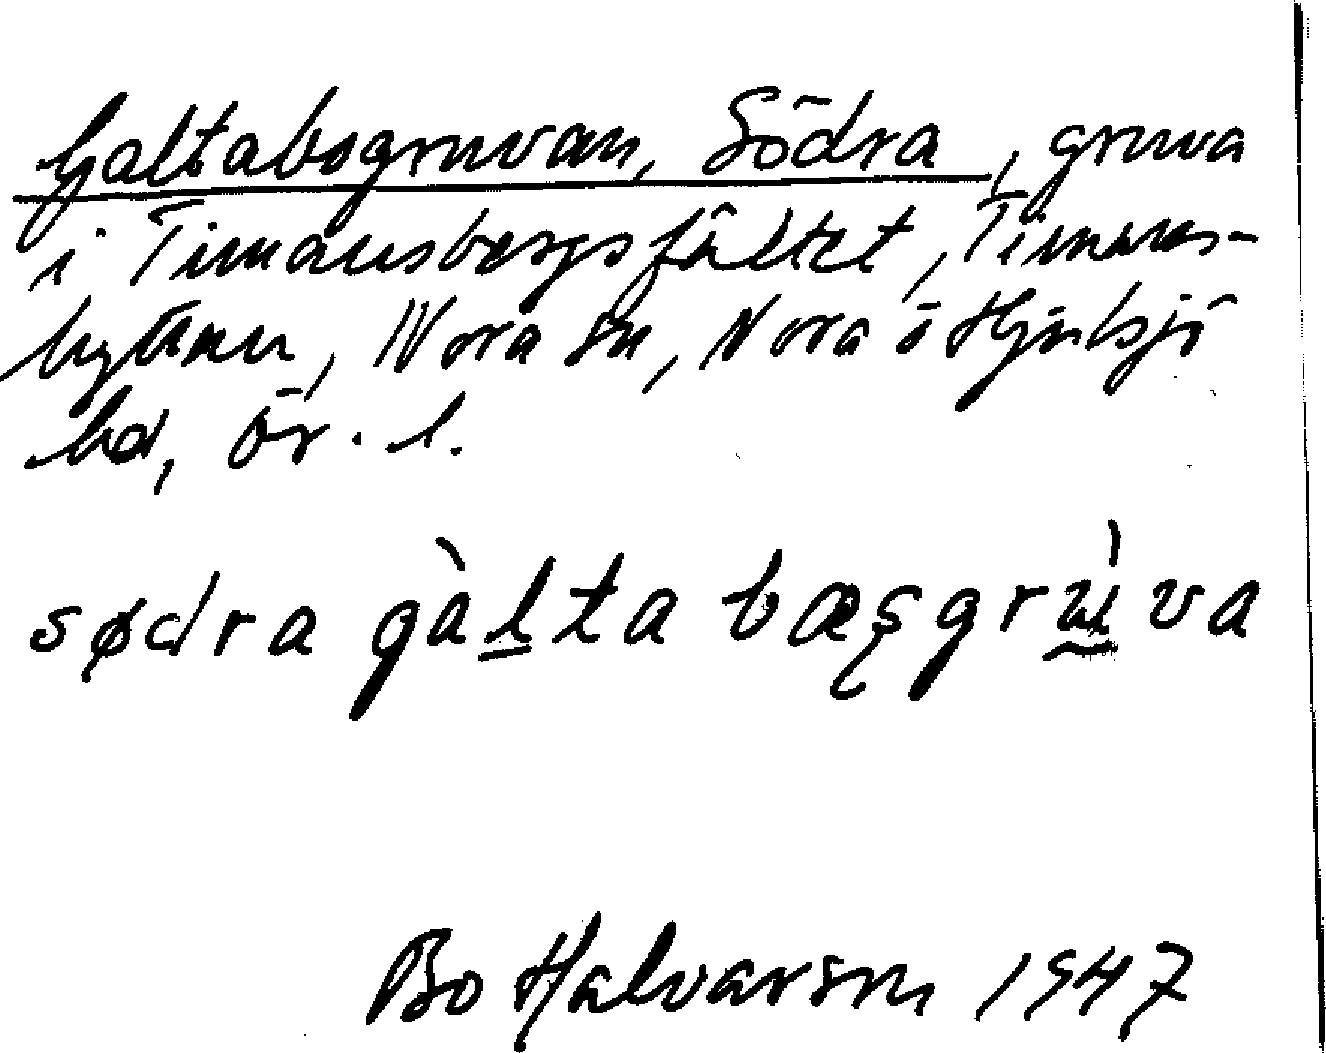 Galtabogruvan, Södra, gruva
i Timansbergsfältet, Timans-
hyttan, Nora sn, Nora o Hjulsjö
bd, Ör. l.
sødra gàlta bæşgrùva
Bo Halvarson 1947